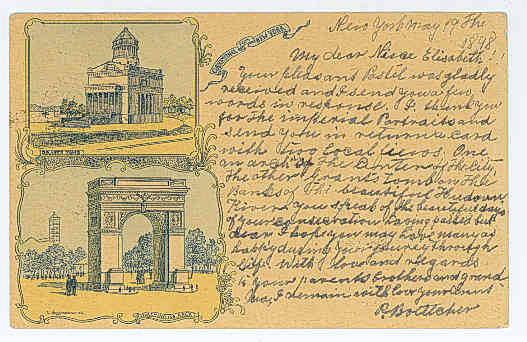 GREETING from NEW YORK.
New York May 19 the
1898.
My dear Niece Elisabeth!
Your pleasant was gladly
received and I send you a few
words in response. I thank you
for the imperial Portraits and
send you in return a card
with two local views. One
an arch of the of the City,
the other Grant's Tomb on the
Banks of the beautiful Hudson
River. You speak of the beautiful days
of your having passed but
dear I hope you may have many as
happy during your journey through
life. With love and regards
to your parents brothers and grand
Ma, I remain with love your
P. Bottcher
GRANT'S TOMB
WASHINGTON ARCH